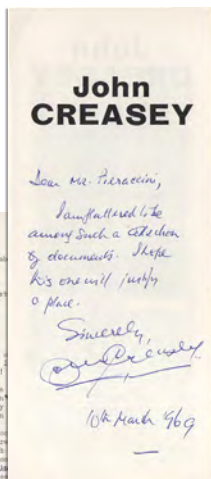 John
CREASEY
Dear Mr. Pieraccini,
I am flattered to be
among such a collection
of documents. I hope
this one will justify
a place.
Sincerely,
John Creasey
10th March 1969